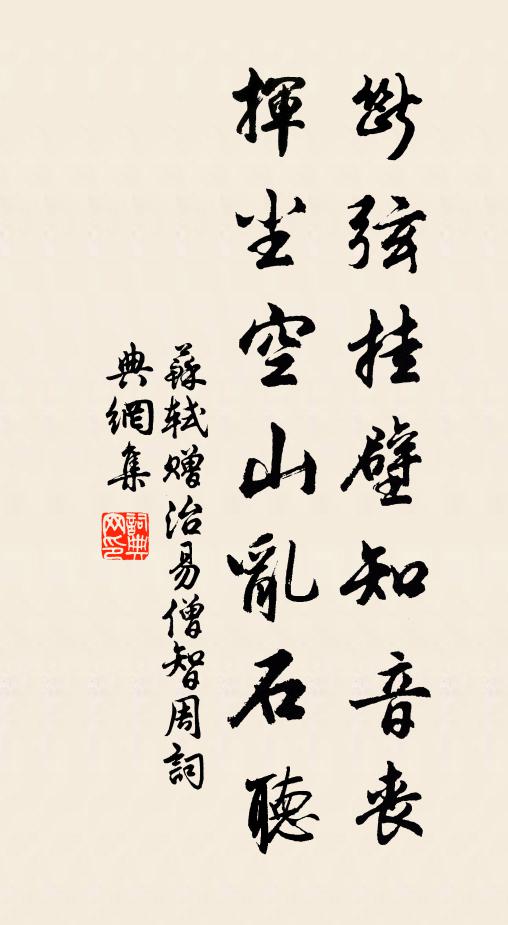 斷弦挂壁知音喪
揮尘空山亂石聽
蘇軾贈治易僧智周詞
典網集
詞典
网印